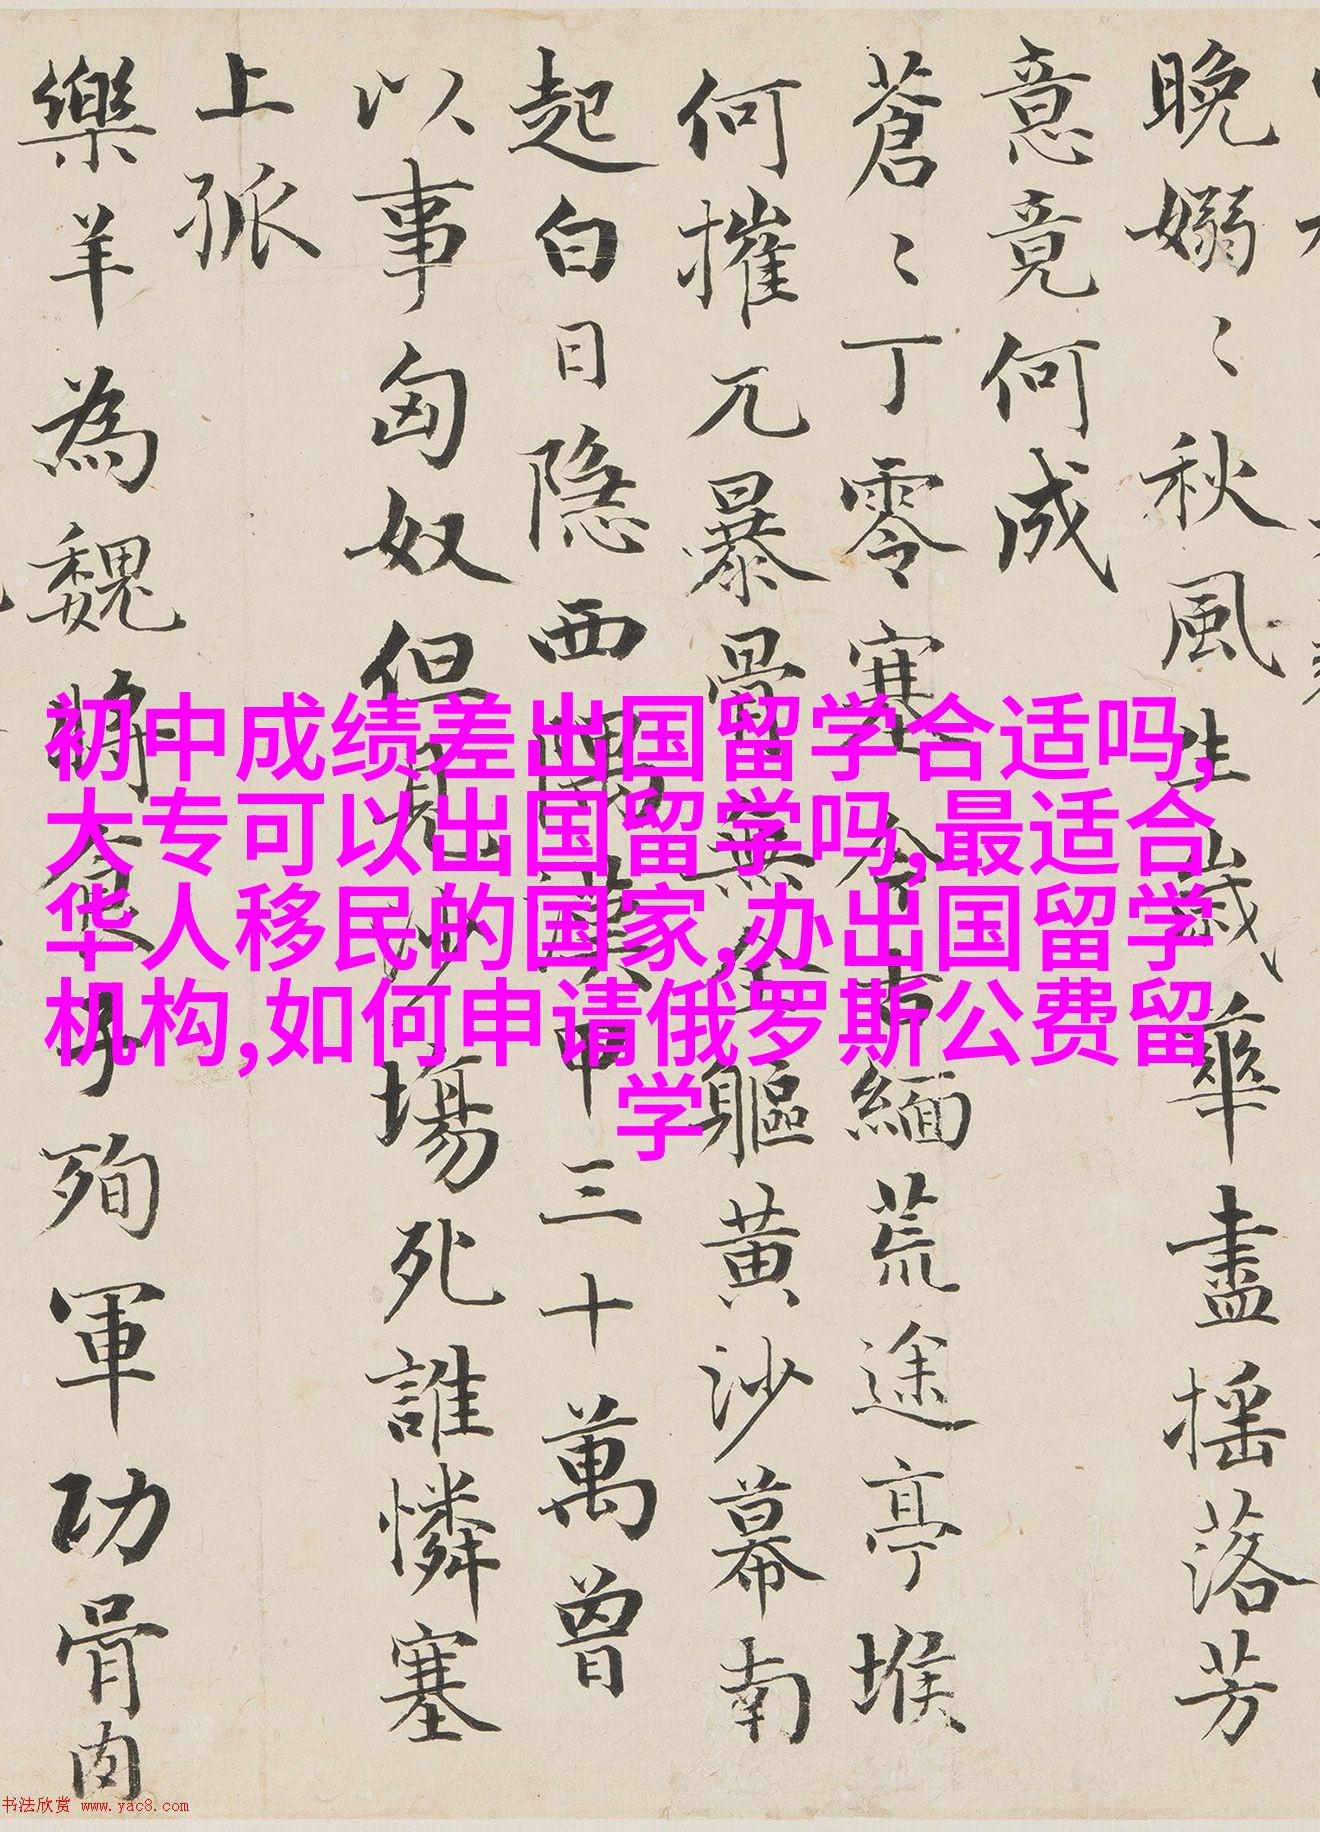 晚嫋〻秋風生歲華盡摇落芳
意竟何成
蒼〻丁零塞今古緬荒途亭堠
何摧兀暴骨無全軀黄沙幕南
起白日隐西隅漢甲三十萬曾
以事匈奴但見沙場死誰憐塞
上孤
樂羊為魏將食子殉軍功骨肉
初中成绩差出国留学合适吗,
大专可以出国留学吗,最适合
华人移民的国家,办出国留学
机构,如何申请俄罗斯公费留
学
书法欣赏 www.yac8.com